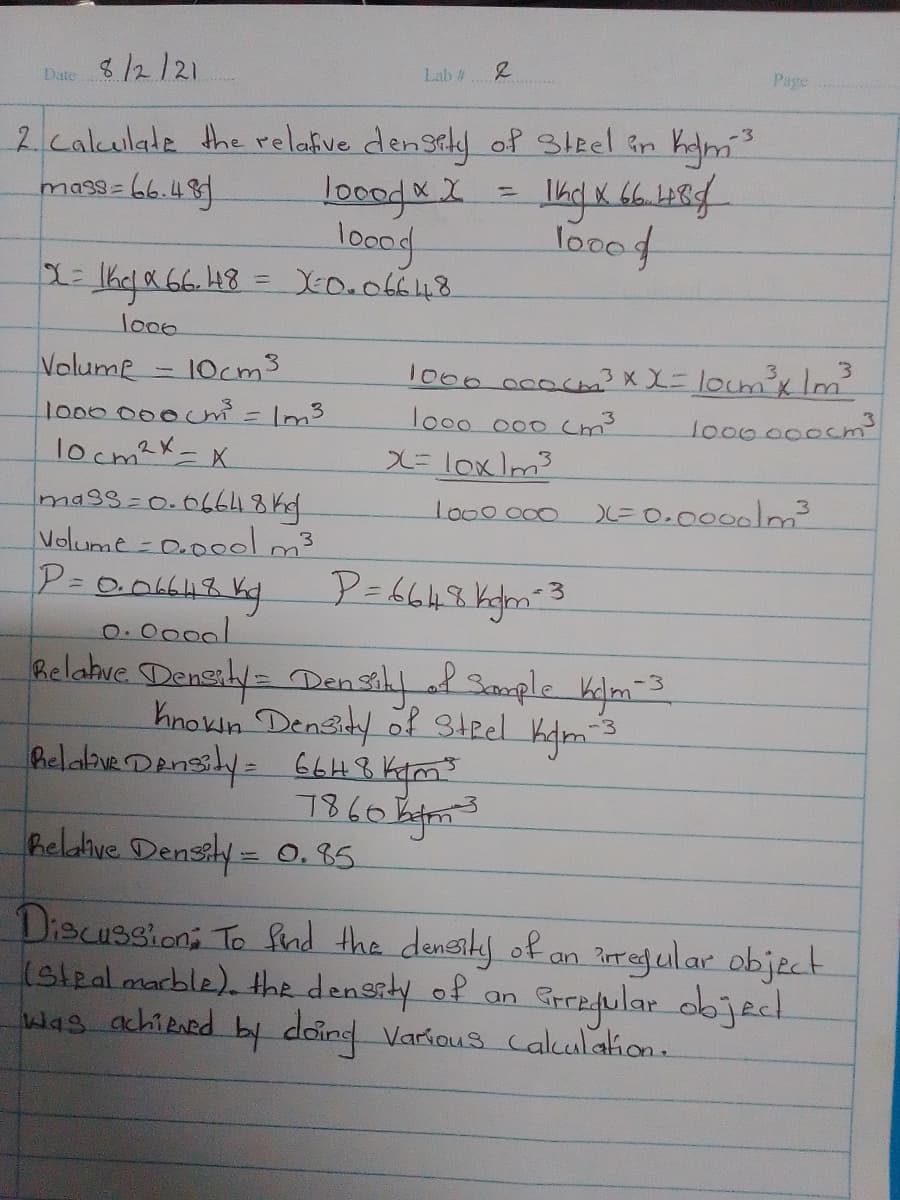 Date 8/2/21 Lab # 2 Page
2. Calculate the relative density of Steel in Kgm⁻³
mass = 66.48g 1000g x X = 1kg x 66.48g
1000g 1000g
X = 1kg x 66.48 = X=0.06648
1000
Volume = 10cm³ 1000 000cm³ x X = 10cm³ x 1m³
1000 000cm³ = 1m³ 1000 000 cm³ 1000 000cm³
10cm²x = x X = 10x1m³
mass = 0.06648 Kg 1000 000 X=0.00001m³
Volume = 0.0001 m³
P = 0.06648 Kg P = 6648 Kgm⁻³
0.00001
Relative Density = Density of Sample Kgm⁻³
Known Density of Steel Kgm⁻³
Relative Density = 6648 Kgm³
7860 Kgm⁻³
Relative Density = 0.85
Discussion: To find the density of an irregular object
(Steal marble). the density of an irregular object
was achieved by doing Various Calculation.